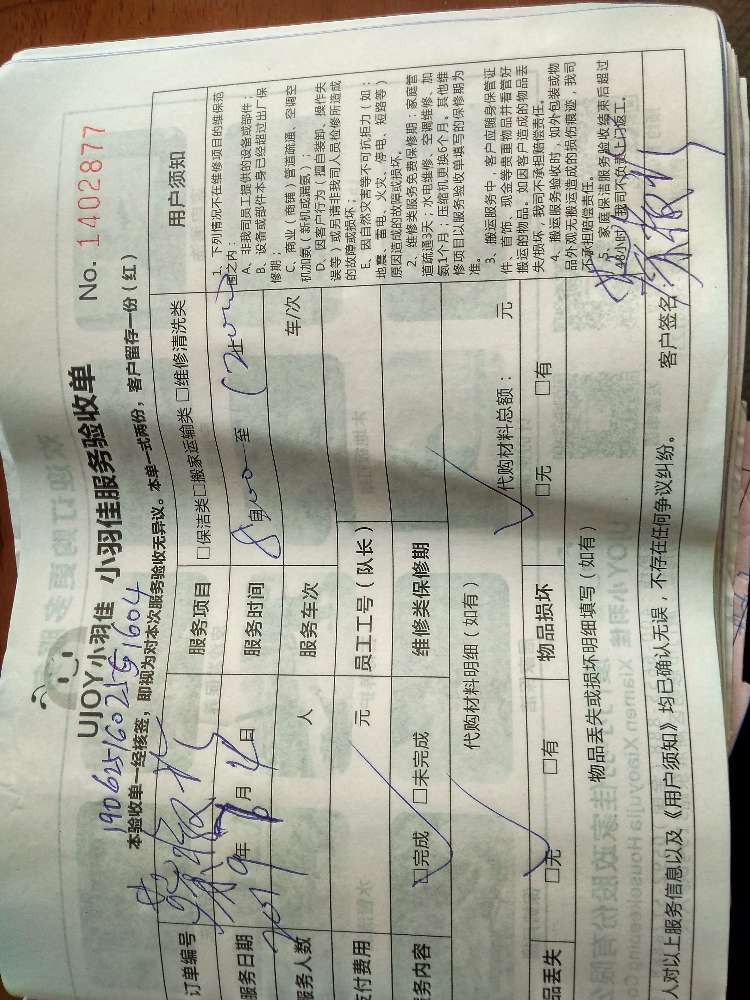 UJOY小羽佳 小羽佳服务验收单
No. 1402877
本验收单一经核签，即视为对本次服务验收无异议。本单一式两份，客户留存一份（红）
订单编号
服务项目 □保洁类□搬家运输类 □维修清洗类
服务日期 2019年 月 日 服务时间 8:00 至
服务人数 人 服务车次 车/次
支付费用 元 员工工号（队长）
服务内容 □完成 □未完成 维修类保修期
代购材料明细（如有） 代购材料总额： 元
物品丢失 □无 □有 物品损坏 □无 □有
物品丢失或损坏明细填写（如有）
用户须知
1、下列情况不在维修项目的维保范
围之内：
A、非我司员工提供的设备或部件；
B、设备或部件本身已经超过出厂保
修期；
C、商业（商铺）管道疏通、空调空
机加氨（新机或漏氨）；
D、因客户行为（擅自装卸、操作失
误等）或另请非我司人员检修所造成
的故障或损坏；
E、因自然灾害等不可抗拒力（如：
地震、蓄电、火灾、停电、短路等）
原因造成的故障或损坏。
2、维修类服务免费保修期：家庭管
道疏通3天；水电维修、空调维修、加
氨1个月；压缩机更换6个月。其他维
修项目以服务验收单填写的保修期为
准。
3、搬运服务中，客户应随身保管证
件、首饰、现金等贵重物品并看管好
搬运的物品。如因客户造成的物品丢
失/损坏，我司不承担赔偿责任。
4、搬运服务验收时，如外包装或物
品外观无搬运造成的损伤痕迹，我司
不承担赔偿责任。
5、家庭保洁服务验收结束后超过
48小时，我司不负责上门返工。
人对以上服务信息以及《用户须知》均已确认无误，不存在任何争议纠纷。 客户签名：